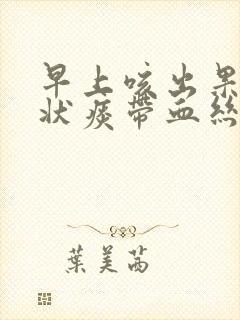 早上咳出果
状痰带血絲
葉美茜